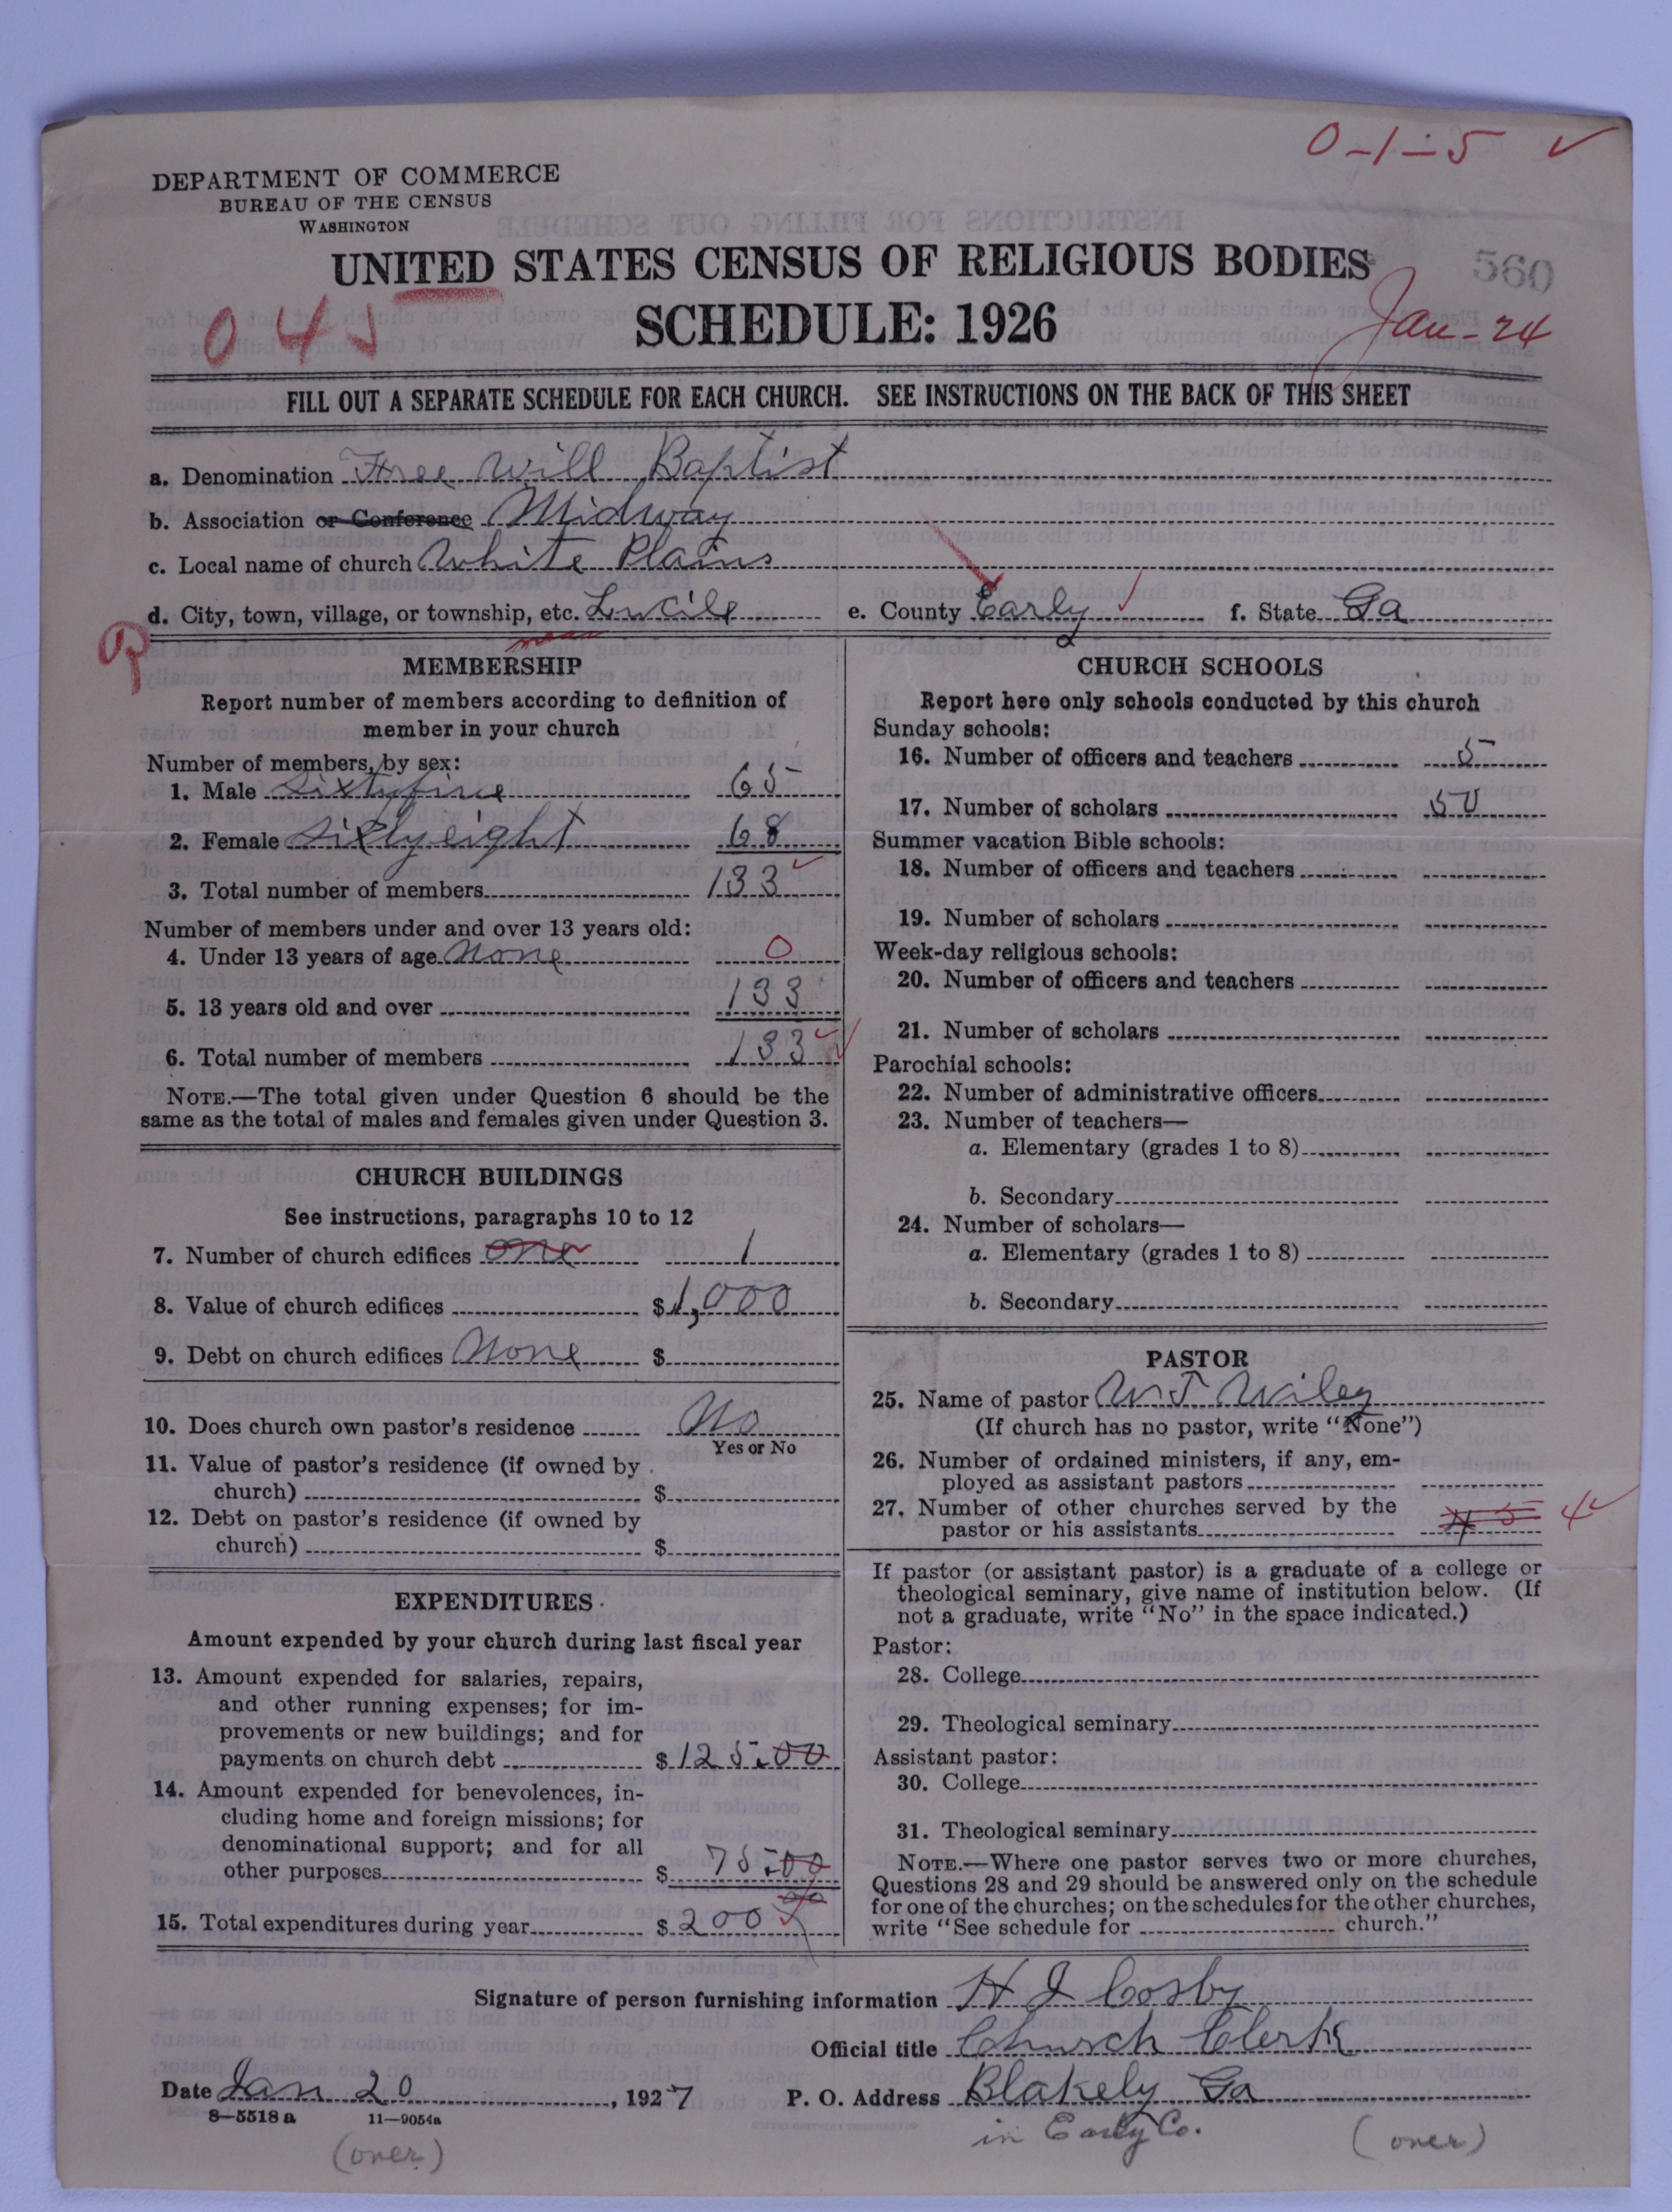 0-1-5 ✓
DEPARTMENT OF COMMERCE
BUREAU OF THE CENSUS
WASHINGTON
UNITED STATES CENSUS OF RELIGIOUS BODIES
560
SCHEDULE: 1926
Jan-24
FILL OUT A SEPARATE SCHEDULE FOR EACH CHURCH. SEE INSTRUCTIONS ON THE BACK OF THIS SHEET
a. Denomination Free Will Baptist
b. Association or Conference Midway
c. Local name of church White Plains
d. City, town, village, or township, etc. Lucile e. County Early ✓ f. State Ga
MEMBERSHIP
Report number of members according to definition of
member in your church
Number of members, by sex:
1. Male Sixtyfive 65
2. Female Sixtyeight 68
3. Total number of members 133 ✓
Number of members under and over 13 years old:
4. Under 13 years of age None 0
5. 13 years old and over 133
6. Total number of members 133 ✓
NOTE.—The total given under Question 6 should be the
same as the total of males and females given under Question 3.
CHURCH BUILDINGS
See instructions, paragraphs 10 to 12
7. Number of church edifices one 1
8. Value of church edifices $1,000
9. Debt on church edifices None $
10. Does church own pastor's residence No
Yes or No
11. Value of pastor's residence (if owned by
church) $
12. Debt on pastor's residence (if owned by
church) $
EXPENDITURES
Amount expended by your church during last fiscal year
13. Amount expended for salaries, repairs,
and other running expenses; for im-
provements or new buildings; and for
payments on church debt $125.00
14. Amount expended for benevolences, in-
cluding home and foreign missions; for
denominational support; and for all
other purposes $ 75.00
15. Total expenditures during year $200 00 ✓
CHURCH SCHOOLS
Report here only schools conducted by this church
Sunday schools:
16. Number of officers and teachers 5
17. Number of scholars 50
Summer vacation Bible schools:
18. Number of officers and teachers
19. Number of scholars
Week-day religious schools:
20. Number of officers and teachers
21. Number of scholars
Parochial schools:
22. Number of administrative officers
23. Number of teachers—
a. Elementary (grades 1 to 8)
b. Secondary
24. Number of scholars—
a. Elementary (grades 1 to 8)
b. Secondary
PASTOR
25. Name of pastor W J Wiley
(If church has no pastor, write "None")
26. Number of ordained ministers, if any, em-
ployed as assistant pastors
27. Number of other churches served by the
pastor or his assistants 4 ✓
If pastor (or assistant pastor) is a graduate of a college or
theological seminary, give name of institution below. (If
not a graduate, write "No" in the space indicated.)
Pastor:
28. College
29. Theological seminary
Assistant pastor:
30. College
31. Theological seminary
NOTE.—Where one pastor serves two or more churches,
Questions 28 and 29 should be answered only on the schedule
for one of the churches; on the schedules for the other churches,
write "See schedule for church."
Signature of person furnishing information H J Cosby
Official title Church Clerk
Date Jan 20, 1927 P. O. Address Blakely Ga
8—5518 a 11—9054a
in Early Co.
(over) (over)